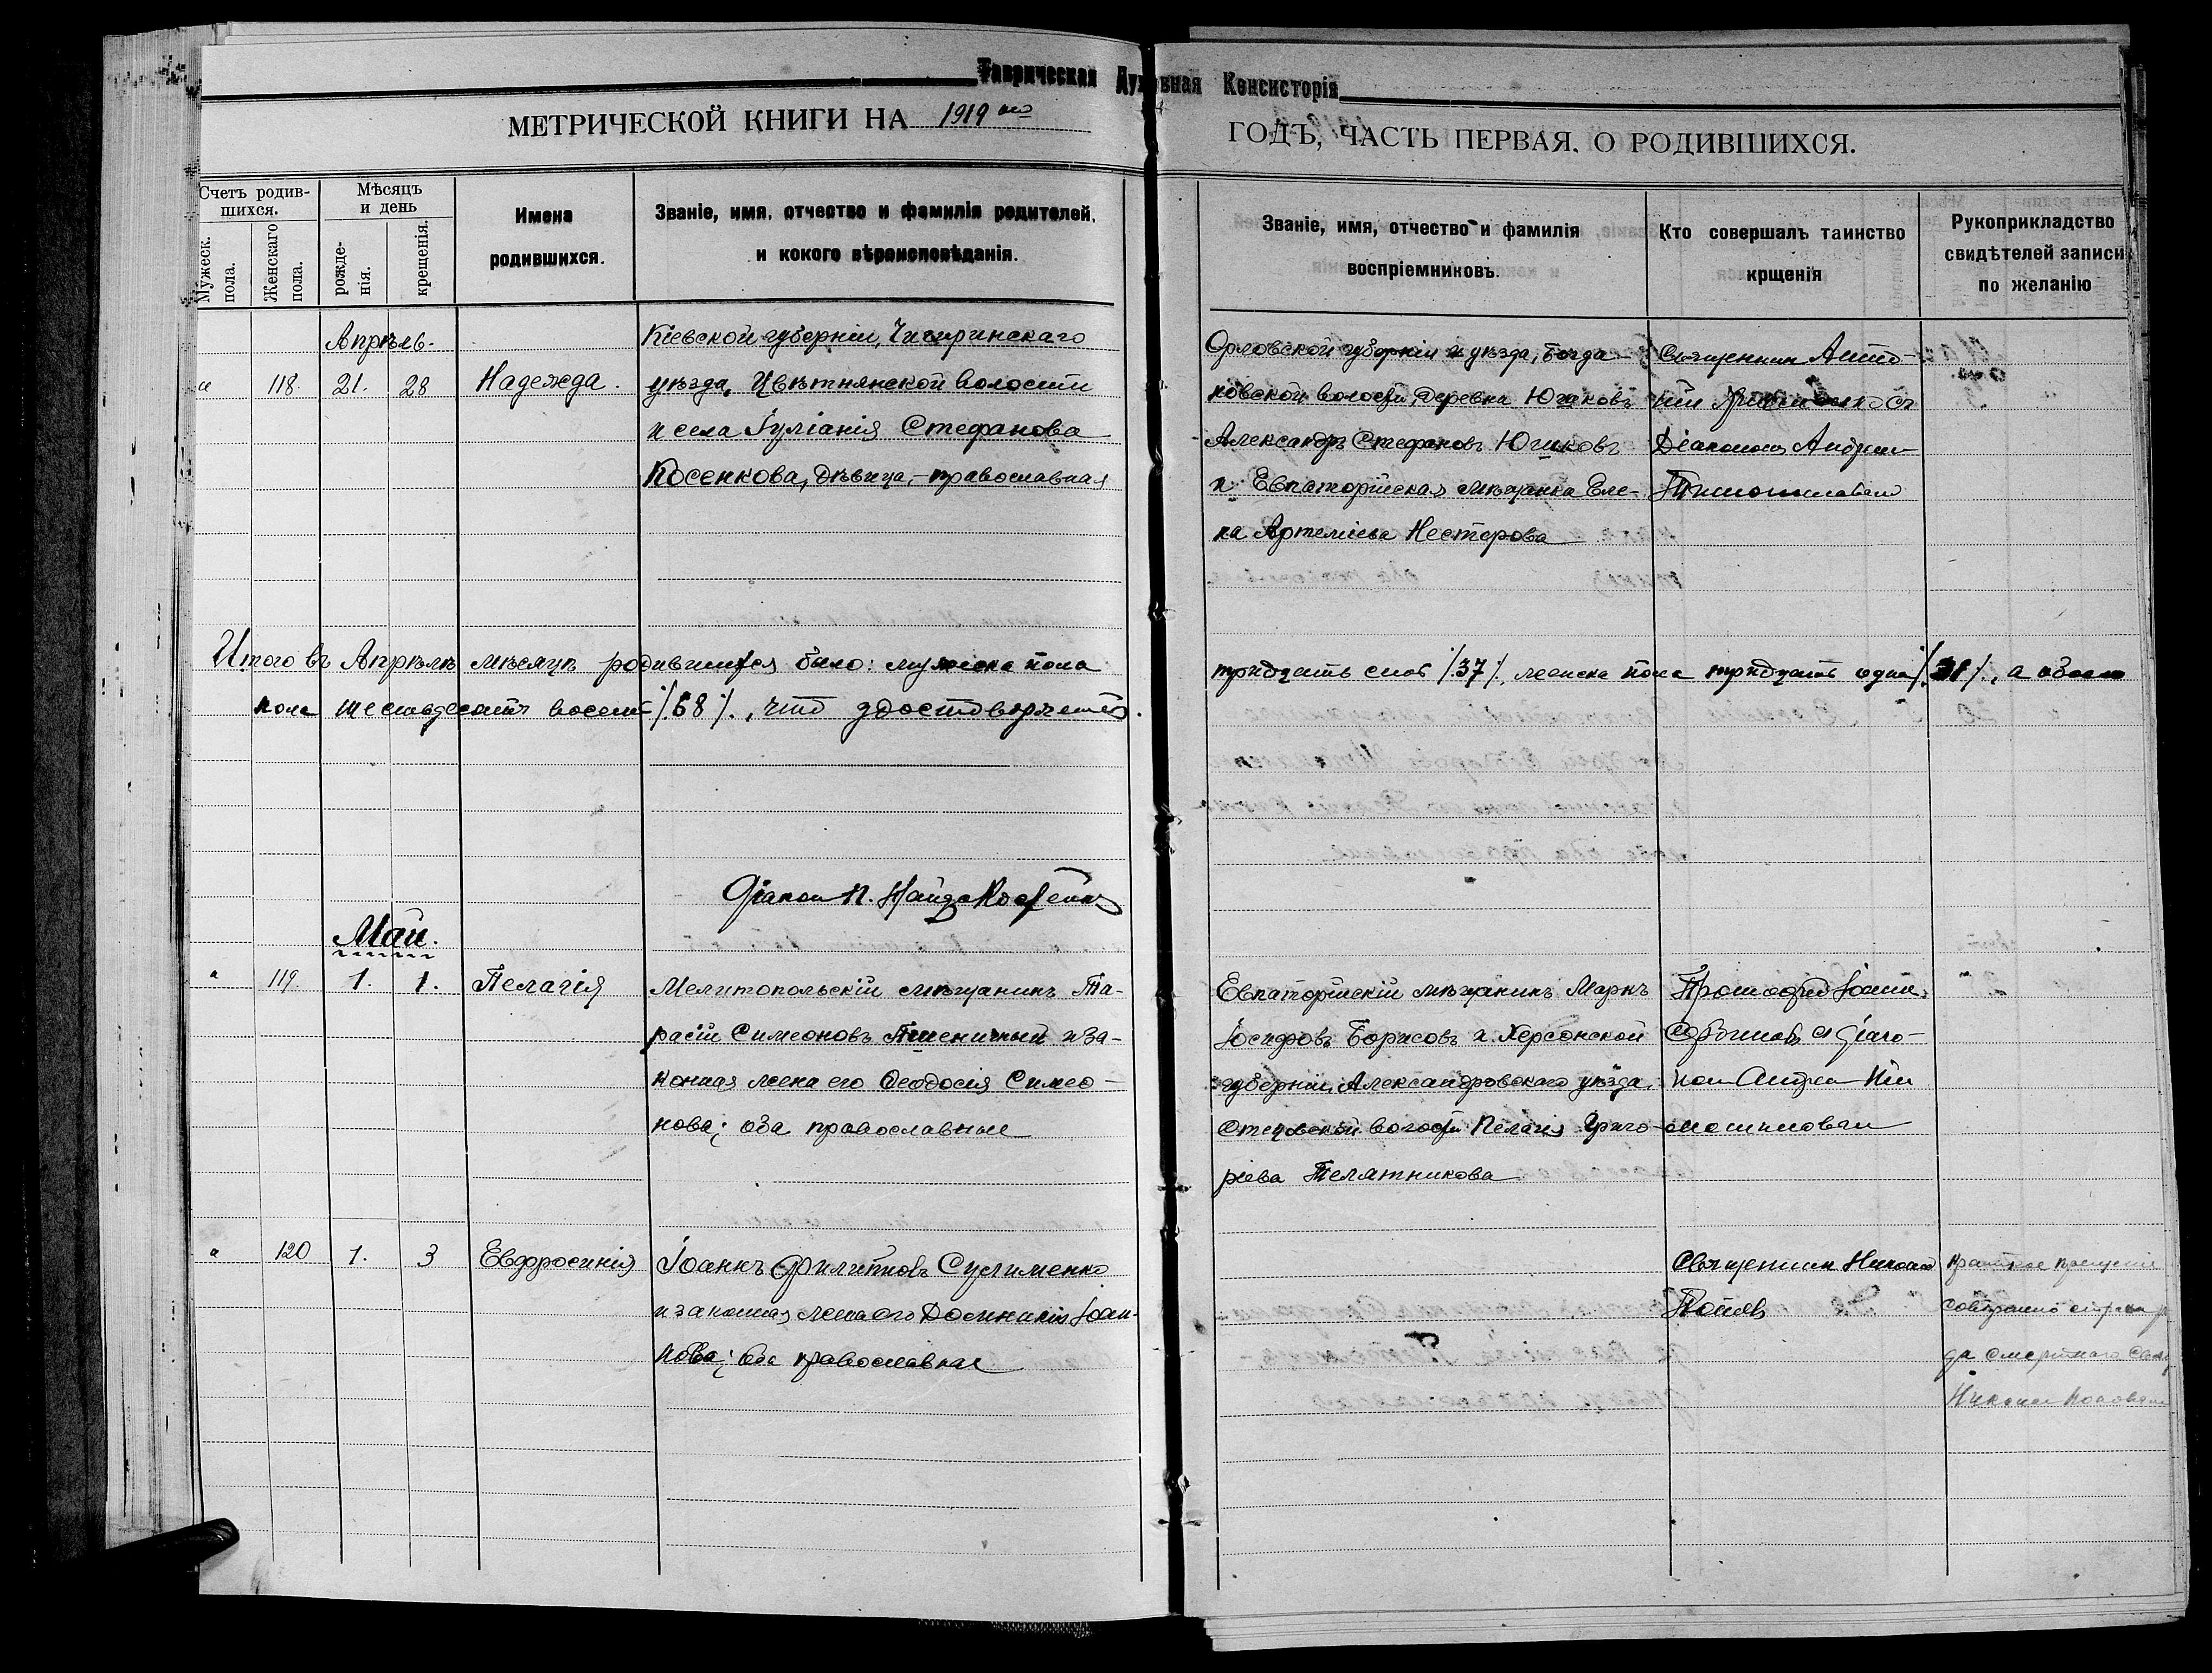 Таврическая Духовная Консисторія
МЕТРИЧЕСКОЙ КНИГИ НА 1919 ГОДЪ, ЧАСТЬ ПЕРВАЯ, О РОДИВШИХСЯ.
Счетъ родившихся.
Мужеск. пола.
Женскаго пола.
Мѣсяцъ и день
рожденія.
крещенія.
Имена родившихся.
Званіе, имя, отчество и фамилія родителей, и кокого вѣроисповѣданія.
Званіе, имя, отчество и фамилія воспріемниковъ.
Кто совершалъ таинство крщенія
Рукоприкладство свидѣтелей записи по желанію
Апрѣль.
118. 21. 28 Надежда.
Кіевской губерніи, Чигиринскаго
уѣзда, Цвѣтнянской волости
и села Іуліанія Стефанова
Косенкова, дѣвица, – православная
Орловской губерніи и уѣзда, Богда-
новской волости, деревни Юшковъ
Александръ Стефановъ Юшковъ
и Евпаторійская мѣщанка Еле-
на Артеміева Нестерова
Священникъ Анто-
ній съ
Діакономъ Андреем
Итого въ Апрѣлѣ мѣсяцѣ родившихся было: мужска пола
тридцать семь /37/, женска пола тридцать одна /31/, а обоего
пола шестьдесятъ восемь /68/, что удостовѣряетъ.
Діакон П.
Май.
119. 1. 1. Пелагія
Мелитопольскій мѣщанинъ Та-
расій Симеоновъ Пшеничный и за-
конная жена его Ѳеодосія Симео-
нова; оба православные
Евпаторійскій мѣщанинъ Маркъ
Іосифовъ Борисовъ и Херсонской
губерніи, Александровскаго уѣзда,
волости Пелагія Григо-
ріева Телятникова
Протоіерей Іоаннъ
съ діако-
ном Андреем
120 1. 3 Евфросинія
Іоаннъ Филипповъ Суслименко
и законная жена его Домникія Іоан-
нова; оба православные
Священник Николай
Попов
краткое крещеніе
совершено
смертнаго
Николай